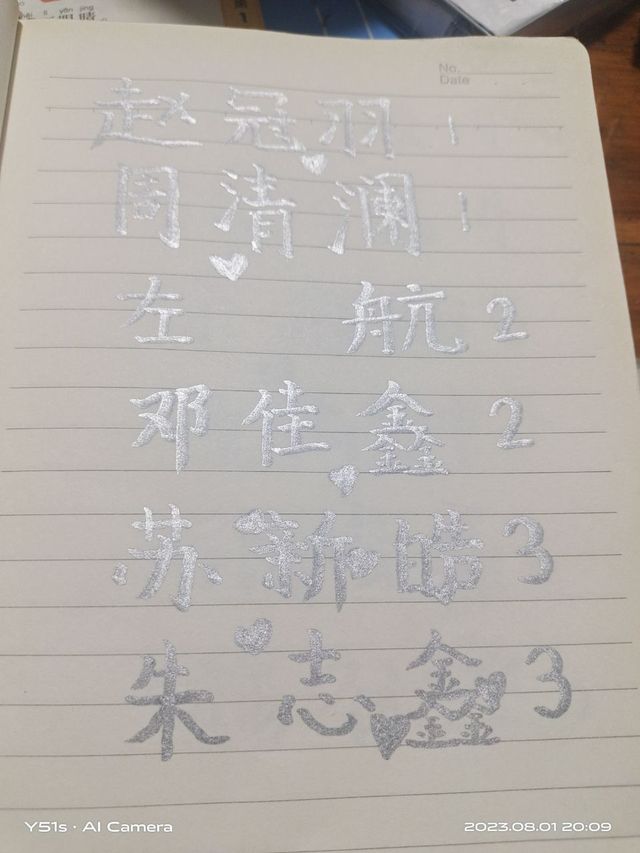 No.
Date
赵冠羽 1
周清澜 1
左 航 2
邓佳鑫 2
苏新皓 3
朱志鑫 3
Y51s · AI Camera
2023.08.01 20:09